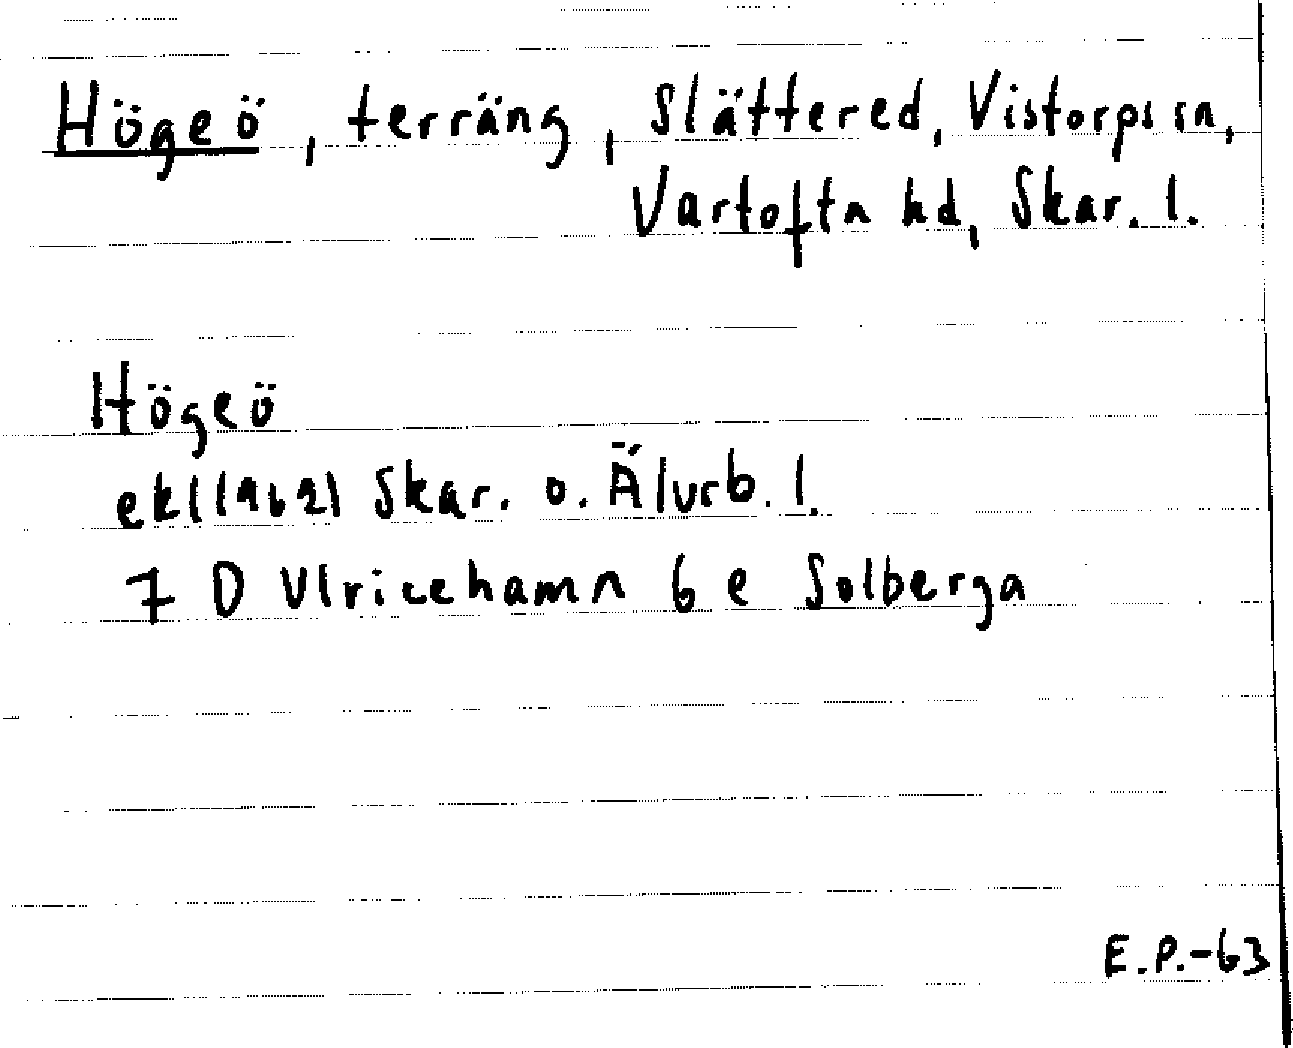 Högeö, terräng, Slättered, Vistorps sn,
Vartofta hd, Skar. l.
Högeö
ekl(1962) Skar. o. Älvsb. l.
7 D Ulricehamn 6 e Solberga
E.P.-63